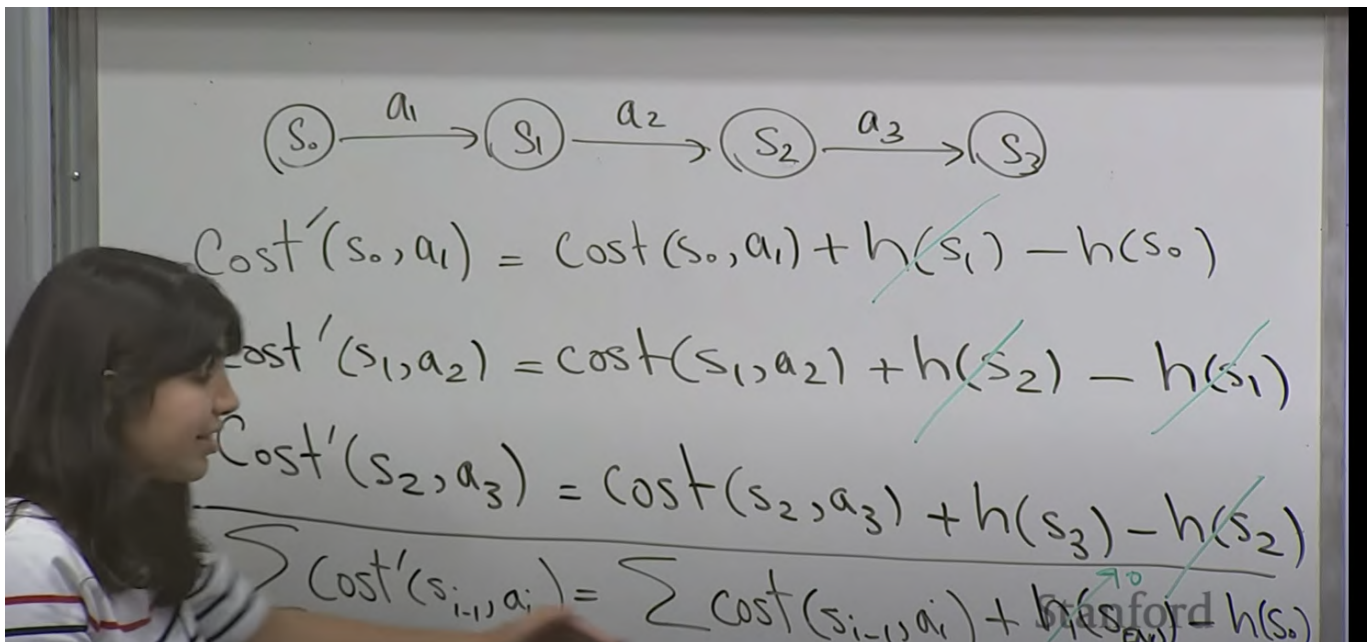 S₀ a₁ S₁ a₂ S₂ a₃ S₃
Cost'(s₀, a₁) = Cost(s₀, a₁) + h(s₁) − h(s₀)
Cost'(s₁, a₂) = cost(s₁, a₂) + h(s₂) − h(s₁)
Cost'(s₂, a₃) = cost(s₂, a₃) + h(s₃) − h(s₂)
∑ Cost'(sᵢ₋₁, aᵢ) = ∑ cost(sᵢ₋₁, aᵢ) + h(s_END) − h(s₀)
→0
Stanford